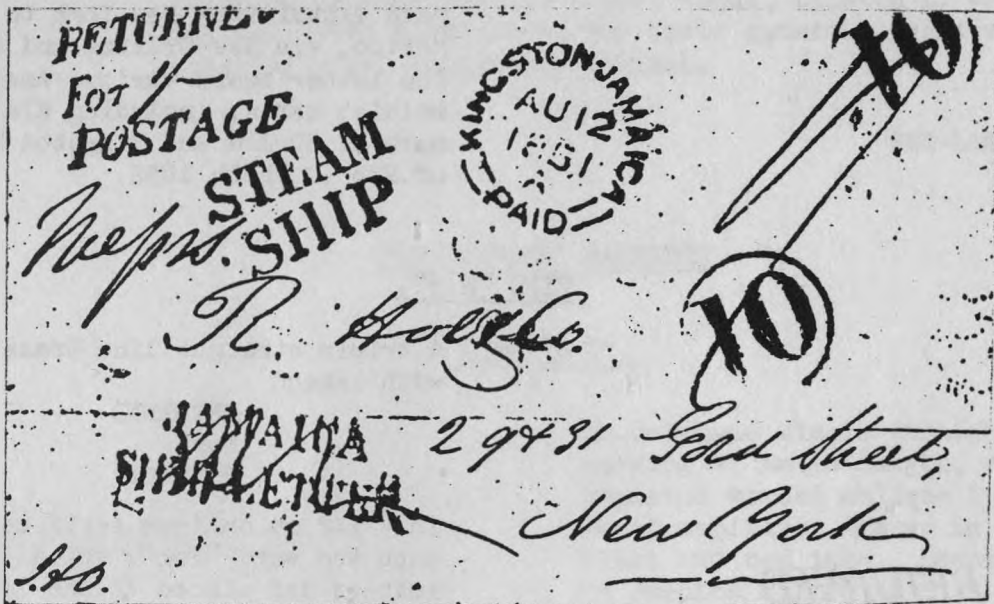 RETURNED
FOT 1/-
POSTAGE
STEAM
SHIP
KINGSTON-JAMAICA
AU 12
1851
PAID
10
Messrs.
R. Hoe & Co.
10
JAMAICA
SHIP LETTER
29 & 31 Gold Street
New York